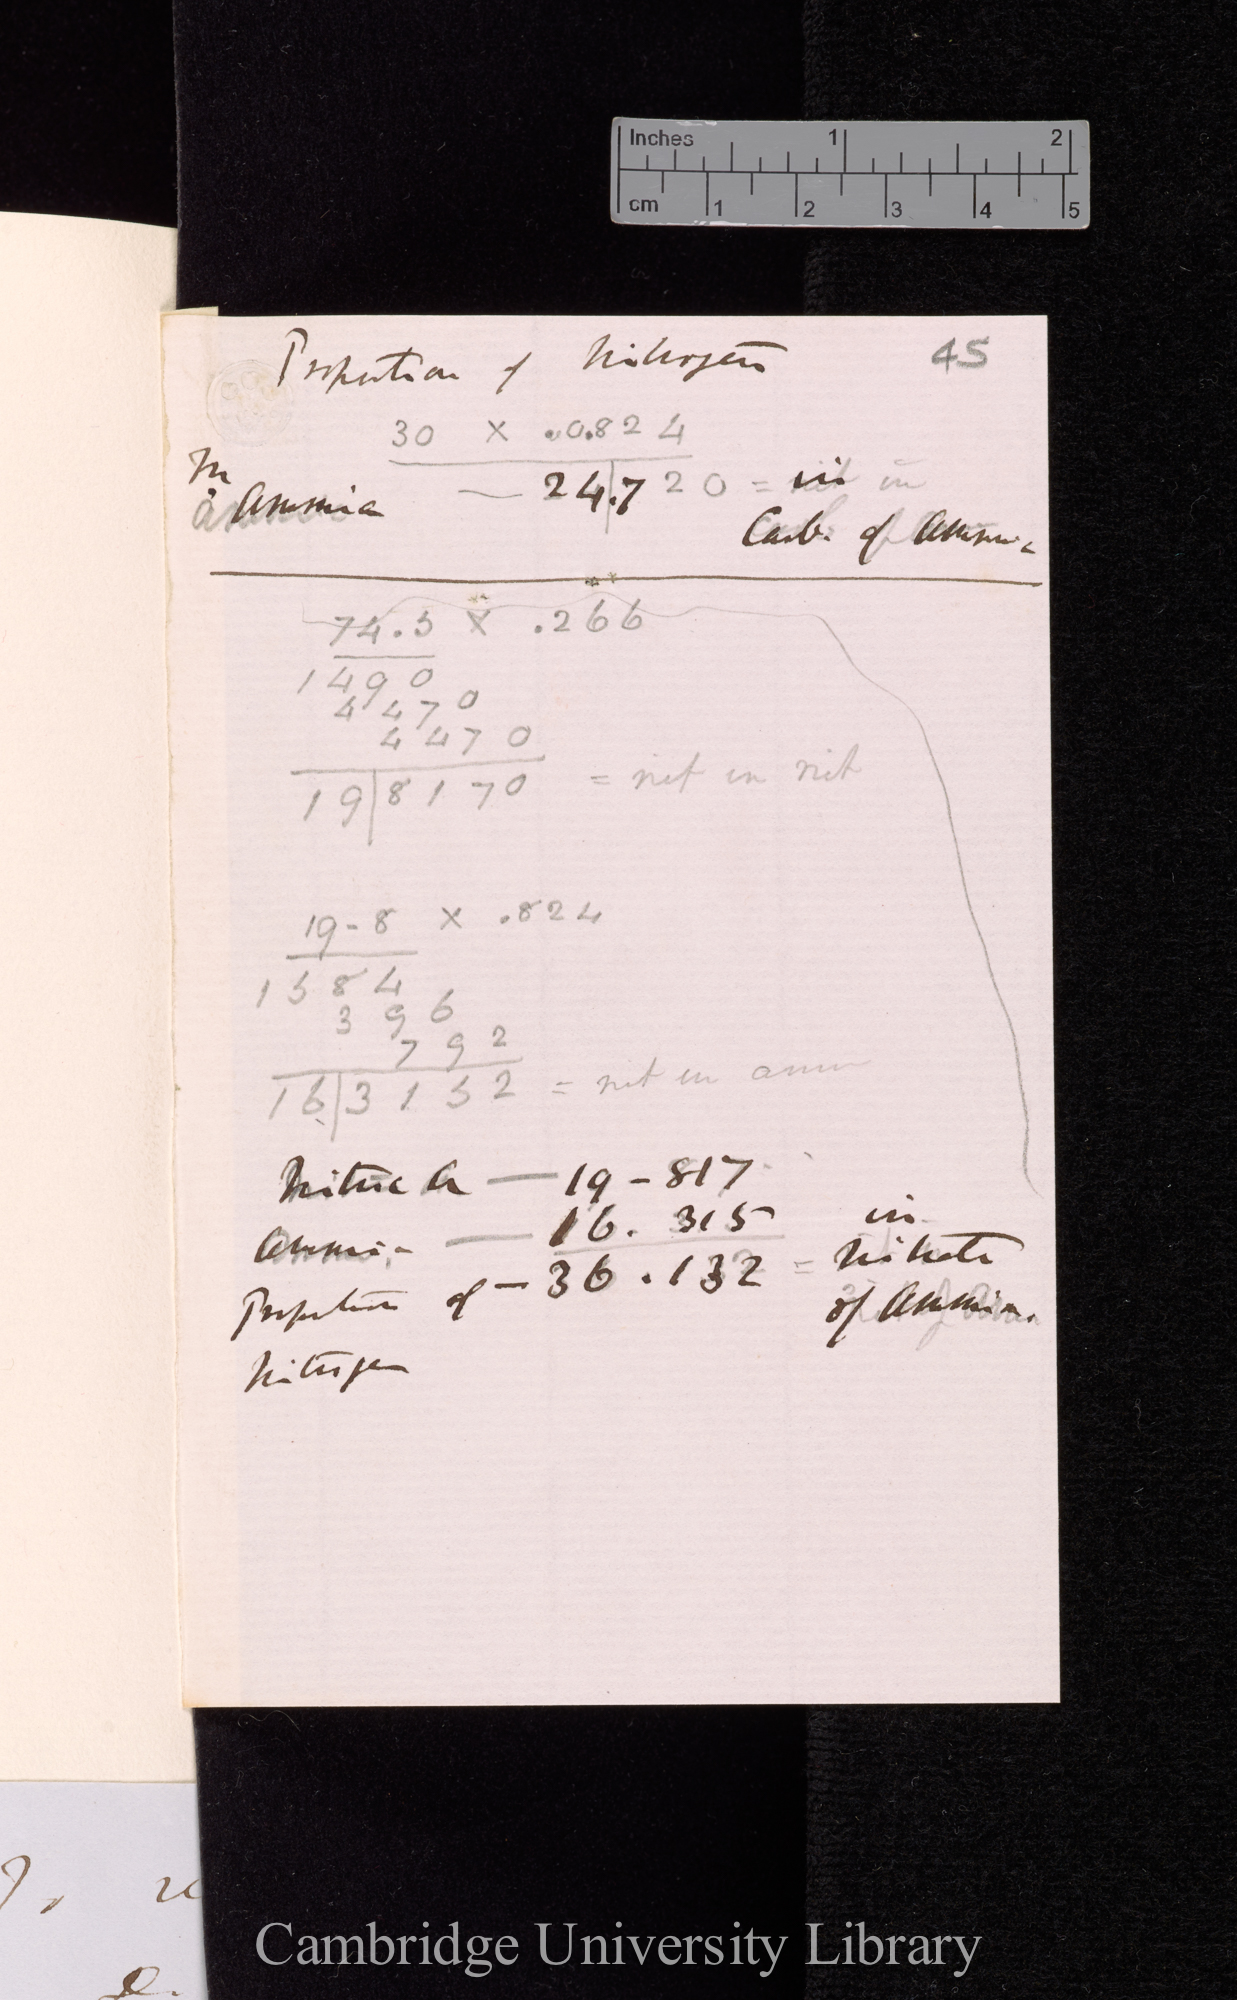 Inches 1 2
cm 1 2 3 4 5
45
Proportion of Nitrogen
30 × .0.824
In
Ammonia — 24.720 = in
Carb. of Ammonia
74.5 × .266
1490
4470
4470
19|8170 = nit in nit
19-8 × .824
1584
396
792
16|3152 = nit in amm
Nitric A — 19-817
Ammonia — 16.315 in
Proportion of — 36.132 = Nitrate
Nitrogen of Ammonia.
Cambridge University Library